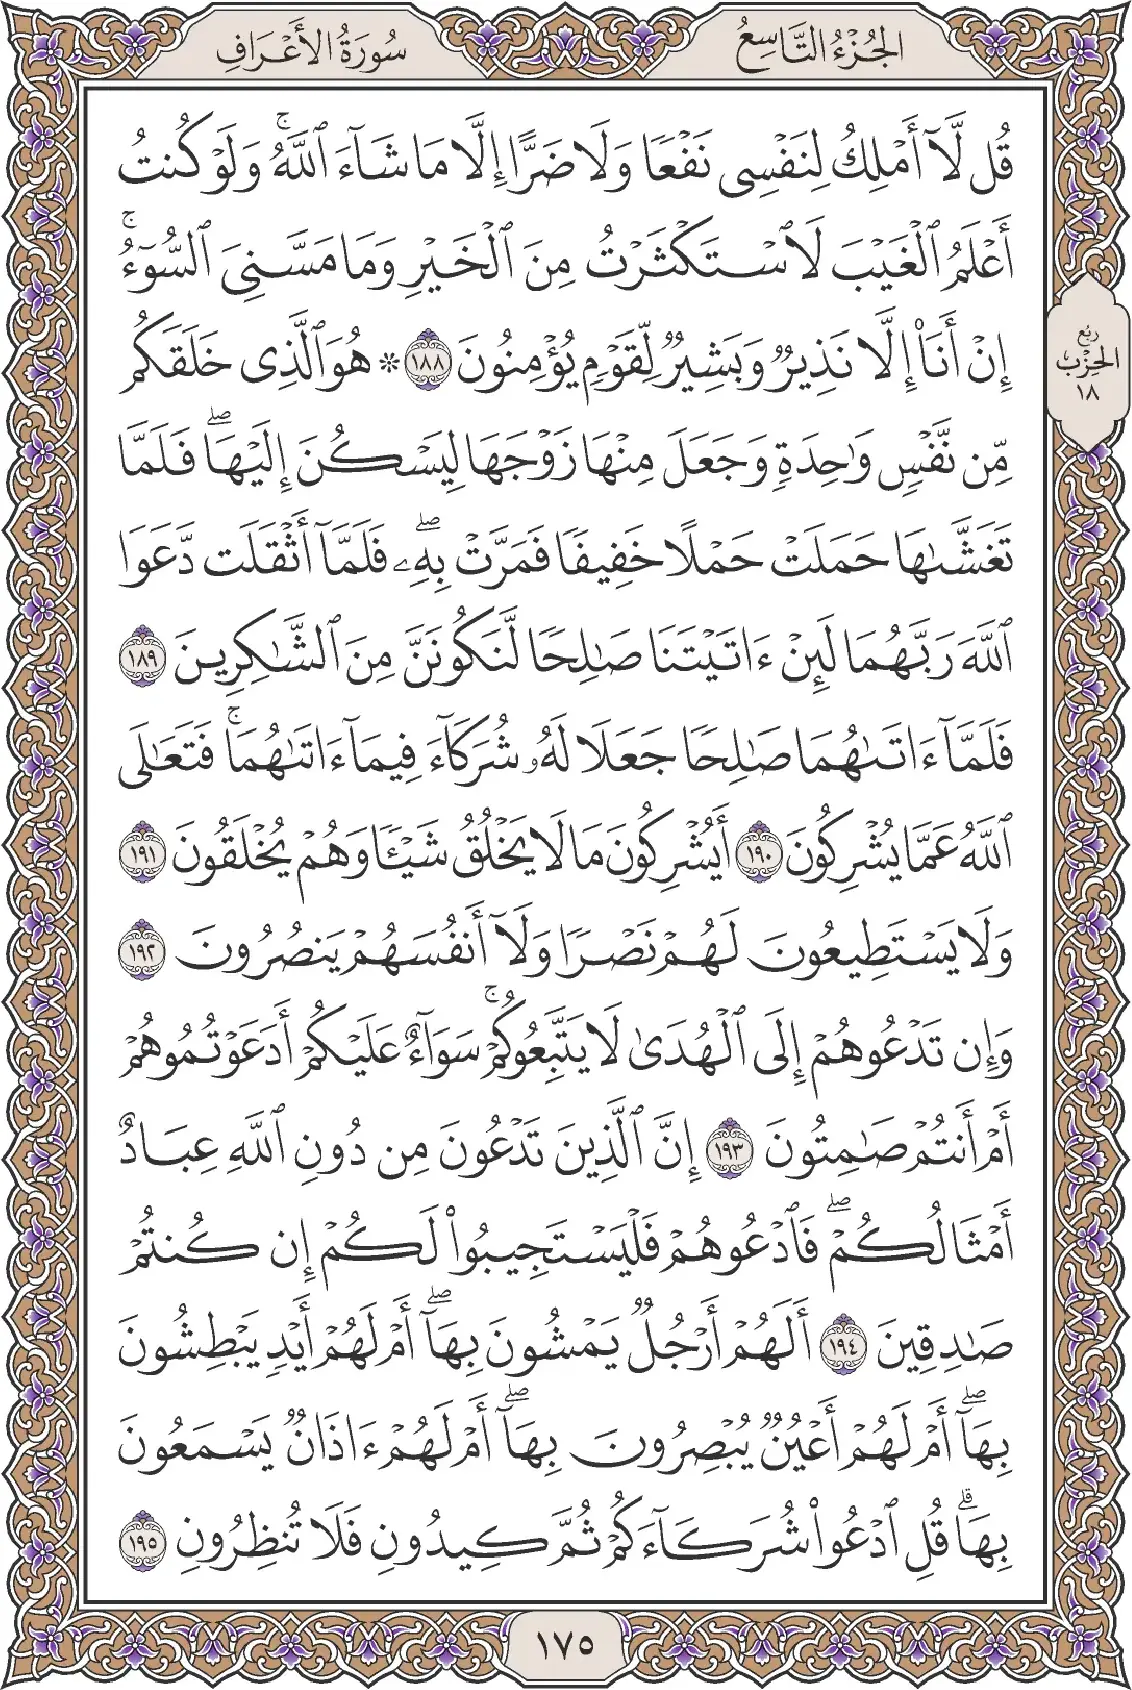 الجُزْءُ التَّاسِعُ
سُورَةُ الأَعْرَافِ
قُل لَّآ أَمْلِكُ لِنَفْسِى نَفْعًا وَلَا ضَرًّا إِلَّا مَا شَآءَ ٱللَّهُۚ وَلَوْ كُنتُ
أَعْلَمُ ٱلْغَيْبَ لَٱسْتَكْثَرْتُ مِنَ ٱلْخَيْرِ وَمَا مَسَّنِىَ ٱلسُّوٓءُۚ
إِنْ أَنَا۠ إِلَّا نَذِيرٌ وَبَشِيرٌ لِّقَوْمٍ يُؤْمِنُونَ ١٨٨ ۞ هُوَ ٱلَّذِى خَلَقَكُم
مِّن نَّفْسٍ وَٰحِدَةٍ وَجَعَلَ مِنْهَا زَوْجَهَا لِيَسْكُنَ إِلَيْهَاۖ فَلَمَّا
تَغَشَّىٰهَا حَمَلَتْ حَمْلًا خَفِيفًا فَمَرَّتْ بِهِۦۖ فَلَمَّآ أَثْقَلَت دَّعَوَا
ٱللَّهَ رَبَّهُمَا لَئِنْ ءَاتَيْتَنَا صَٰلِحًا لَّنَكُونَنَّ مِنَ ٱلشَّٰكِرِينَ ١٨٩
فَلَمَّآ ءَاتَىٰهُمَا صَٰلِحًا جَعَلَا لَهُۥ شُرَكَآءَ فِيمَآ ءَاتَىٰهُمَاۚ فَتَعَٰلَى
ٱللَّهُ عَمَّا يُشْرِكُونَ ١٩٠ أَيُشْرِكُونَ مَا لَا يَخْلُقُ شَيْـًٔا وَهُمْ يُخْلَقُونَ ١٩١
وَلَا يَسْتَطِيعُونَ لَهُمْ نَصْرًا وَلَآ أَنفُسَهُمْ يَنصُرُونَ ١٩٢
وَإِن تَدْعُوهُمْ إِلَى ٱلْهُدَىٰ لَا يَتَّبِعُوكُمْۚ سَوَآءٌ عَلَيْكُمْ أَدَعَوْتُمُوهُمْ
أَمْ أَنتُمْ صَٰمِتُونَ ١٩٣ إِنَّ ٱلَّذِينَ تَدْعُونَ مِن دُونِ ٱللَّهِ عِبَادٌ
أَمْثَالُكُمْۖ فَٱدْعُوهُمْ فَلْيَسْتَجِيبُوا۟ لَكُمْ إِن كُنتُمْ
صَٰدِقِينَ ١٩٤ أَلَهُمْ أَرْجُلٌ يَمْشُونَ بِهَآۖ أَمْ لَهُمْ أَيْدٍ يَبْطِشُونَ
بِهَآۖ أَمْ لَهُمْ أَعْيُنٌ يُبْصِرُونَ بِهَآۖ أَمْ لَهُمْ ءَاذَانٌ يَسْمَعُونَ
بِهَاۗ قُلِ ٱدْعُوا۟ شُرَكَآءَكُمْ ثُمَّ كِيدُونِ فَلَا تُنظِرُونِ ١٩٥
رُبْعُ
الحِزْبِ
١٨
١٧٥